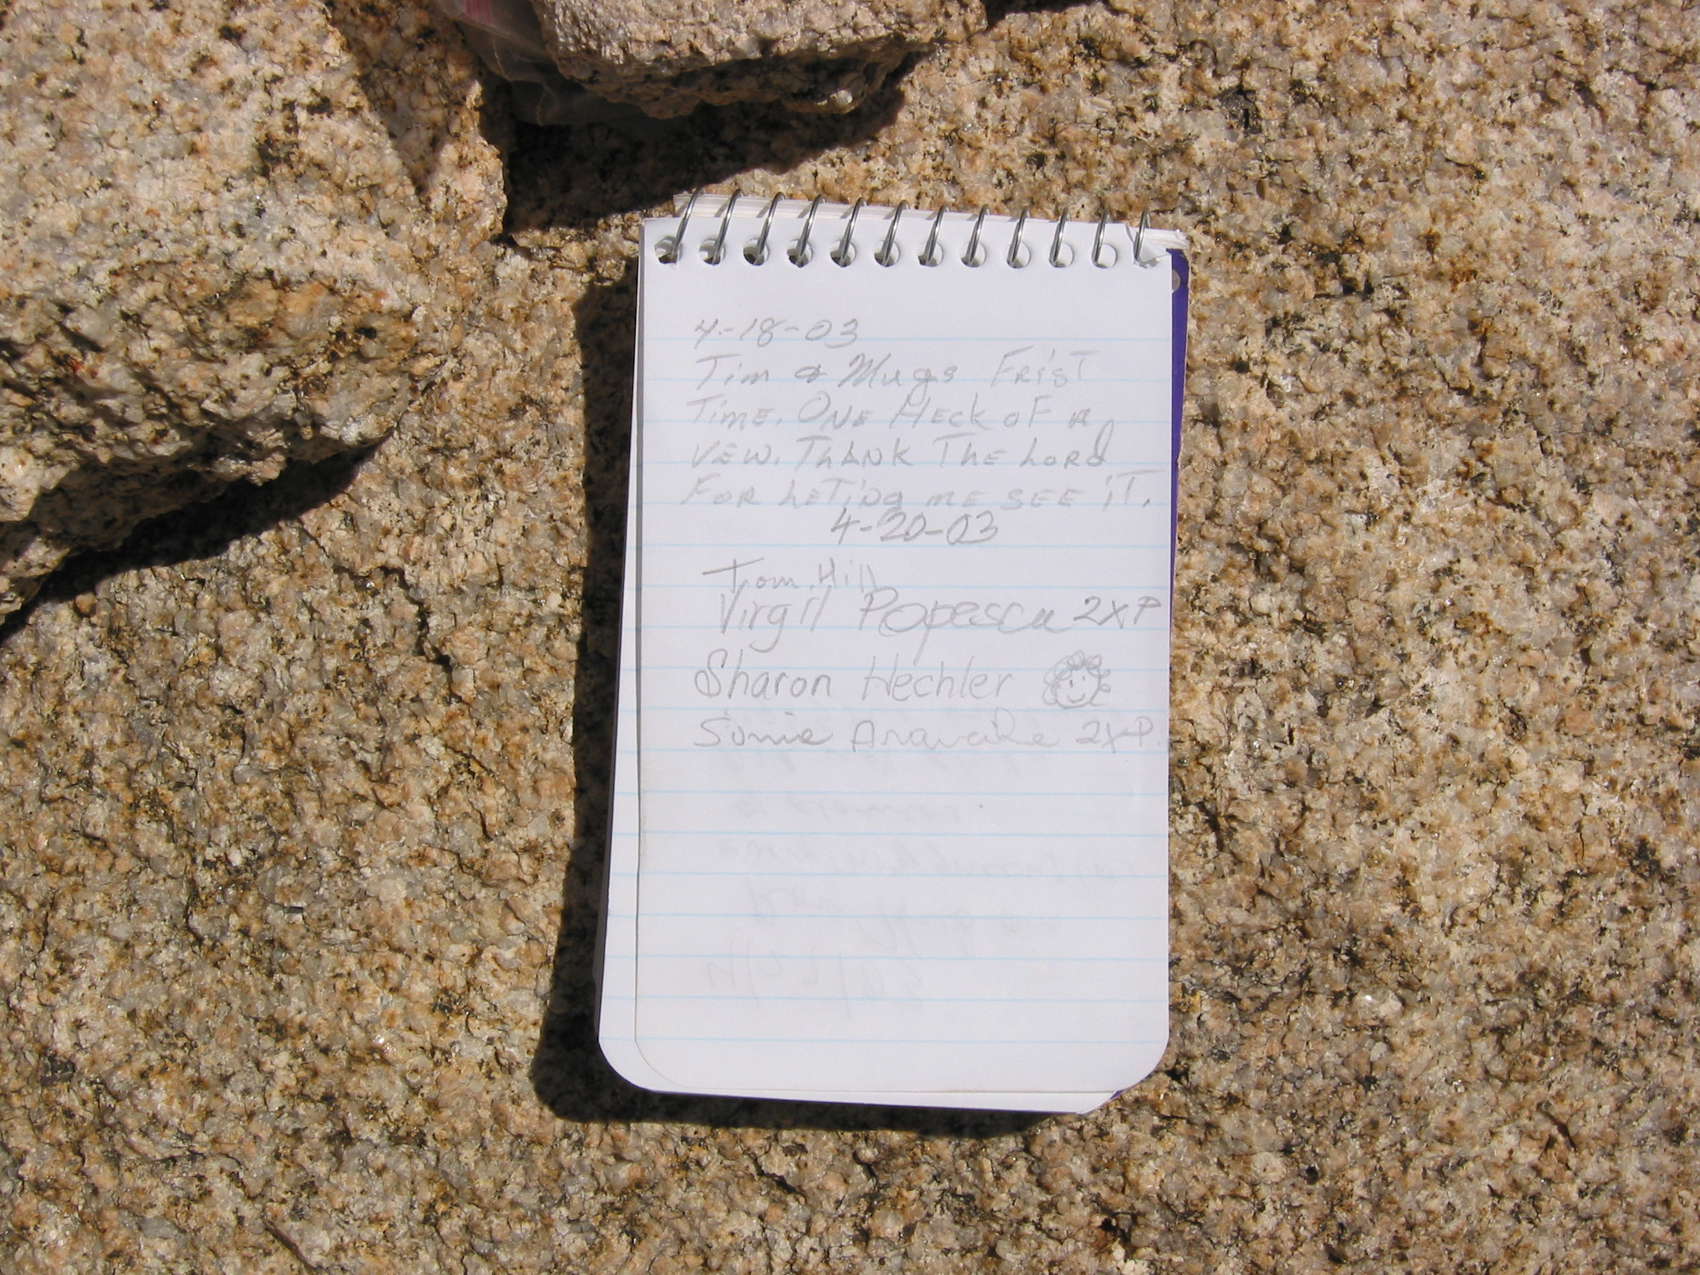 4-18-03
Tim & Mugs FRIST
TIME. ONE HECK OF A
VEW. THANK THE LORD
FOR LETING ME SEE IT.
4-20-03
Tom Hill
Virgil Popescu 2XP
Sharon Hechler
2XP